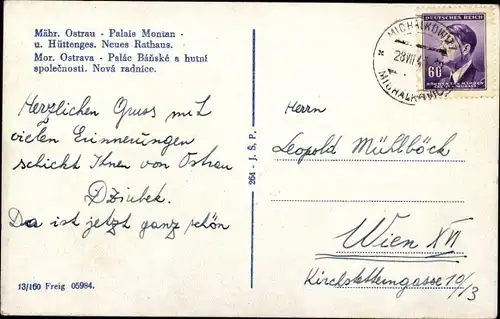 Mähr. Ostrau - Palais Montan -
u. Hüttenges. Neues Rathaus.
Mor. Ostrava - Palác Báňské a hutní
společnosti. Nová radnice.
Herzlichen Gruss mit
vielen Erinnerungen
schickt Ihnen von Ostrau
Dziubek.
Da ist jetzt ganz schön
13/160 Freig 05984.
264 - J. S. P.
DEUTSCHES REICH
60
MICHALKOWITZ
28 VII 4
Herrn
Leopold Mühlböck
Wien XVI
Kirchstetterngasse 10/3